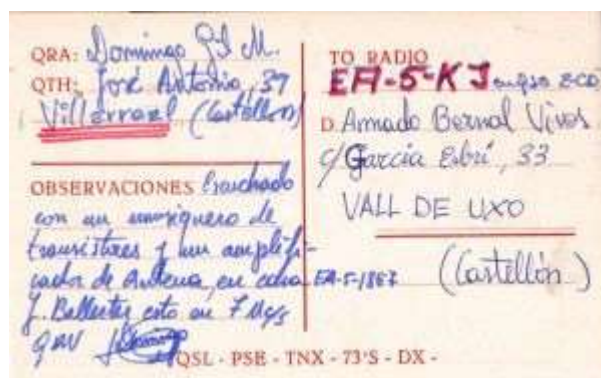 QRA: Domingo Gil M.
QTH: José Antonio, 37
Villarreal (Castellón)
OBSERVACIONES Escuchado
con un de
transistores y un amplifi-
cador de Antena, en casa
J. Ballester esto en 7 Mg/s
QRV
TO RADIO
EA-5-KJ en QSO ECO
D. Amado Bernal Vives
c/ García Esbrí, 33
VALL DE UXO
EA-5-1867 (Castellón)
QSL - PSE - TNX - 73'S - DX -